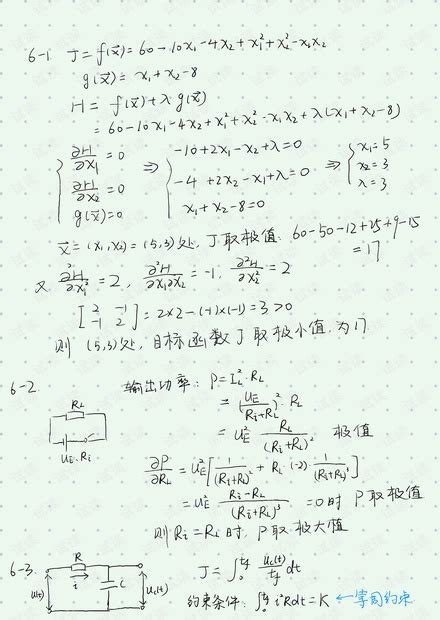 6-1 J = f(x⃗) = 60 - 10x₁ - 4x₂ + x₁² + x₂² - x₁x₂
g(x⃗) = x₁ + x₂ - 8
H = f(x⃗) + λ g(x⃗)
= 60 - 10x₁ - 4x₂ + x₁² + x₂² - x₁x₂ + λ(x₁ + x₂ - 8)
∂H/∂x₁ = 0 ⇒ -10 + 2x₁ - x₂ + λ = 0 ⇒ x₁ = 5
∂H/∂x₂ = 0 -4 + 2x₂ - x₁ + λ = 0 x₂ = 3
g(x⃗) = 0 x₁ + x₂ - 8 = 0 λ = 3
x⃗ = (x₁, x₂) = (5, 3) 处, J 取极值: 60 - 50 - 12 + 25 + 9 - 15
= 17
又 ∂²H/∂x₁² = 2, ∂²H/∂x₁∂x₂ = -1, ∂²H/∂x₂² = 2
[2 -1
-1 2] = 2×2 - (-1)×(-1) = 3 > 0
则 (5,3)处, 目标函数 J 取极小值, 为 17
6-2 输出功率: P = I_L² · R_L
R_L
= (U_E/(R_i+R_L))² · R_L
= U_E² R_L/(R_i+R_L)² 极值
U_E · R_i
∂P/∂R_L = U_E² [1/(R_i+R_L)² + R_L · (-2) · 1/(R_i+R_L)³]
= U_E² (R_i-R_L)/(R_i+R_L)³ = 0 时 P 取极值
则 R_i = R_L 时, P 取极大值
6-3. R
J = ∫₀^{t_f} u_c(t)/t_f dt
u(t) i C u_c(t)
约束条件: ∫₀^{t_f} i²R dt = K ← 等周约束